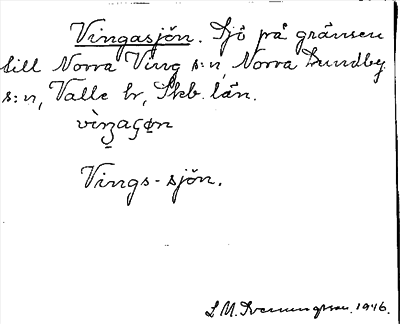 Vingasjön. Sjö på gränsen
till Norra Ving s:n, Norra Lundby
s:n, Valle hr, Skb. län.
Vings-sjön.
1946.